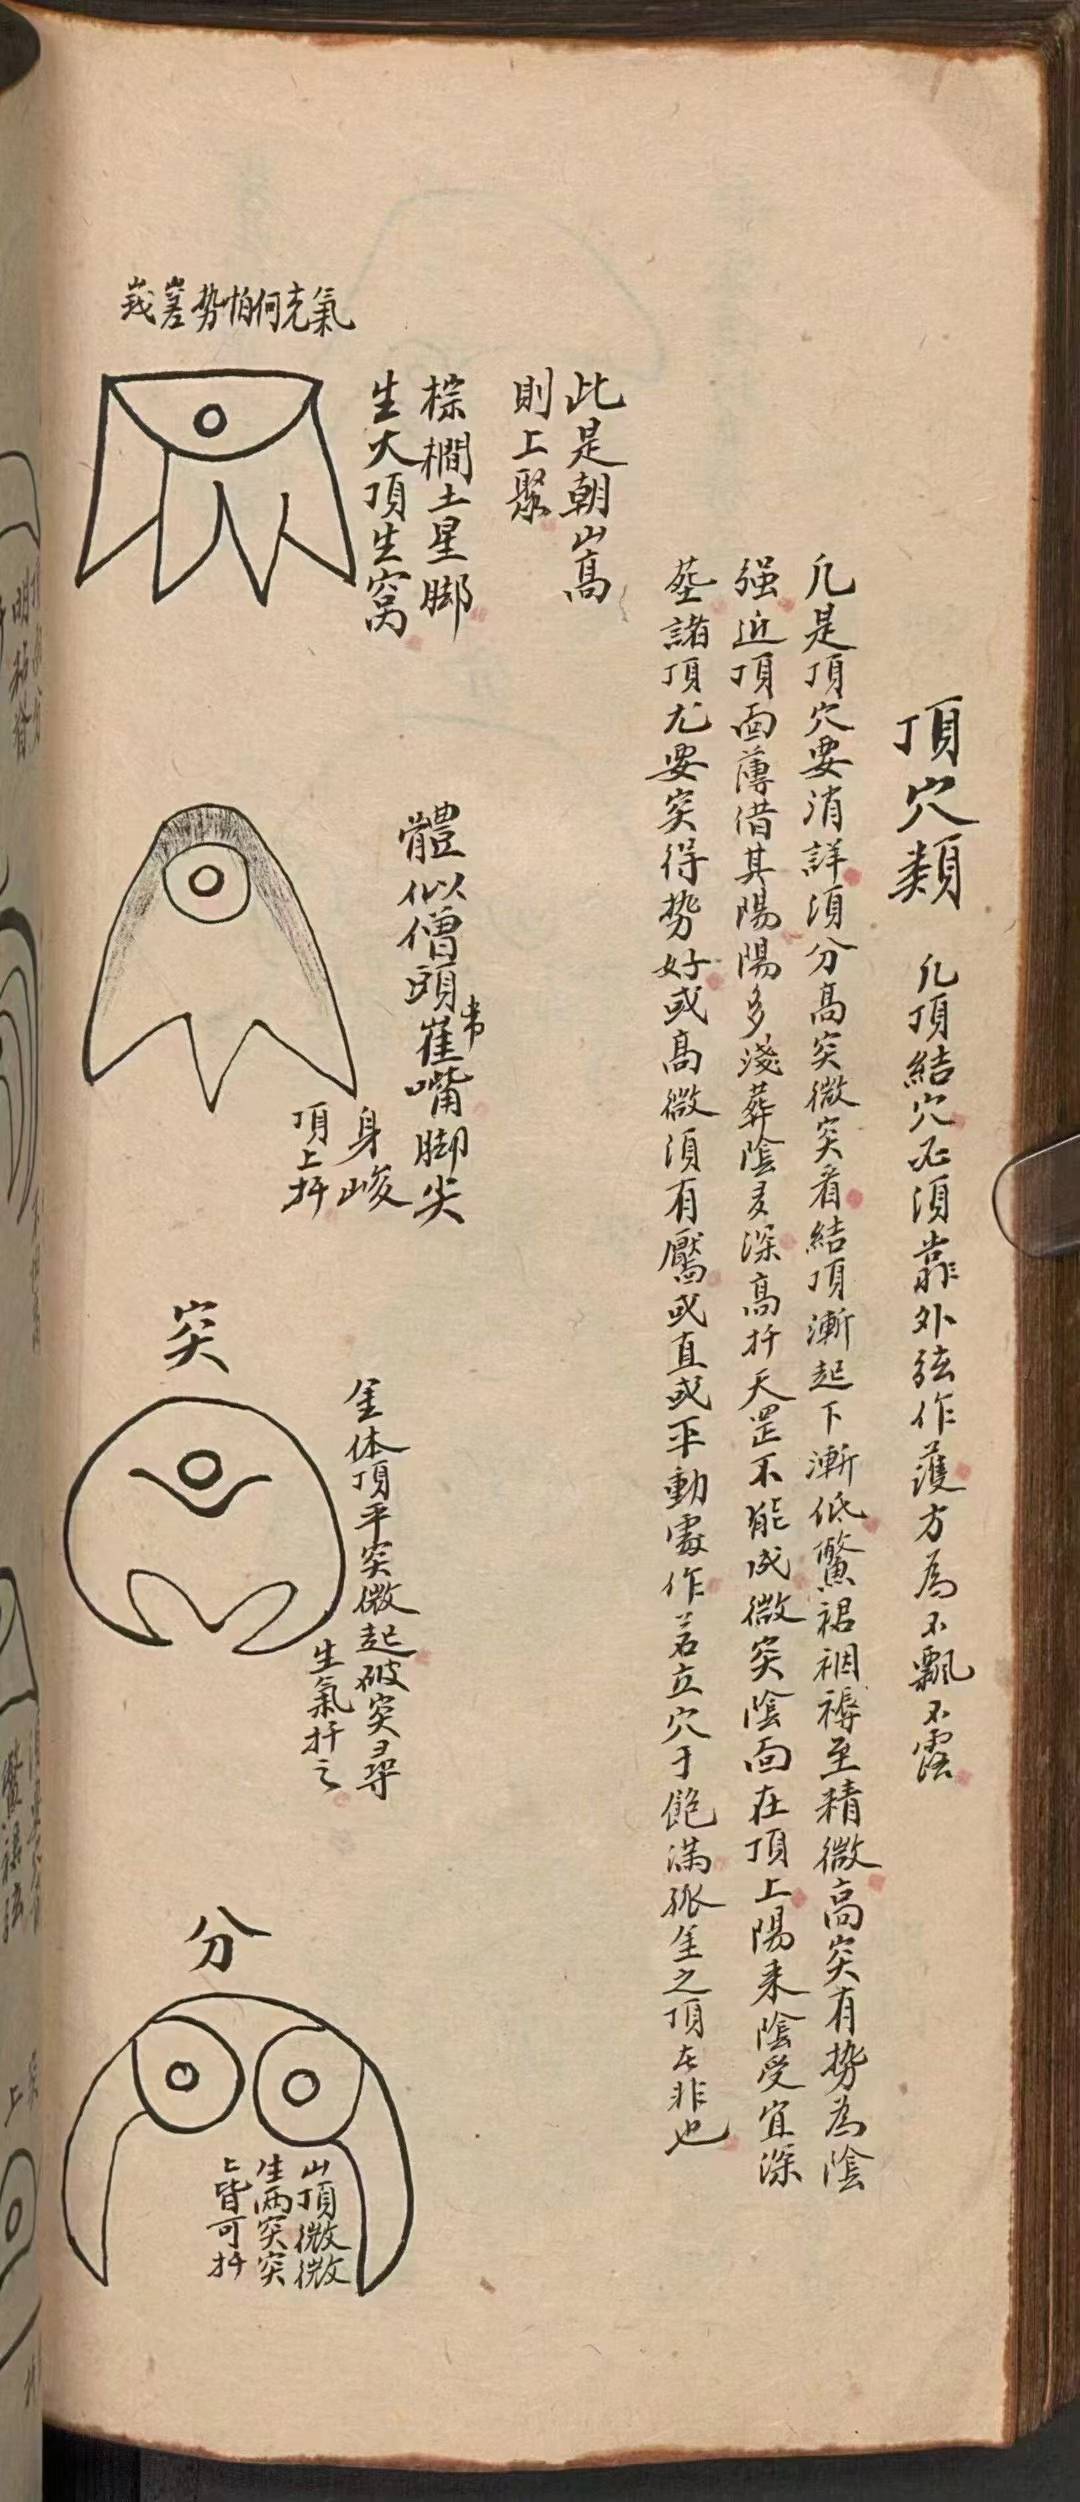 頂穴類 凡頂結穴必須靠外弦作護方為不飄不露
凡是頂穴要消詳須分高突微突看結頂漸起下漸低鱉裙裀褥至精微高突有势為陰
强近頂面薄借其陽陽多淺葬陰多深高扦天罡不能成微突陰面在頂上陽来陰受宜深
塟諸頂尤要突得势好或高微須有靨或直或平動處作若立穴于飽滿孤𨤽之頂去非也
此是朝山高
則上聚
棕櫚土星脚
生大頂生窝
峩嵳势怕何克氣
體似僧頭崔嘴脚尖
身峻
頂上扦
突
金体頂平突微起破突尋
生氣扦之
分
山頂微微
生兩突突
上皆可扦